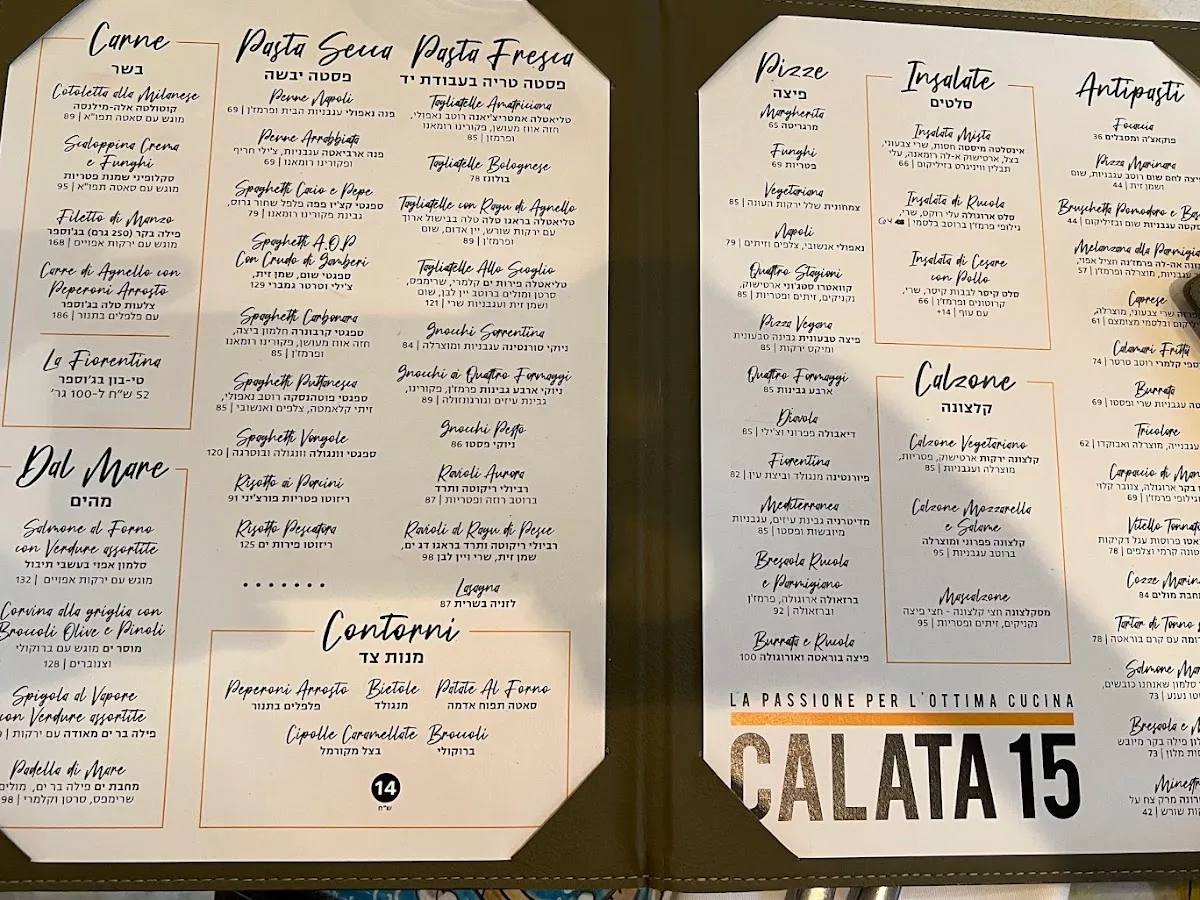 Carne
בשר
Cotoletta alla Milanese
קוטולטה אלה-מילנסה
מוגש עם סאטה תפו"א | 89
Scaloppina Crema
e Funghi
סקלופיני שמנת פטריות
מוגש עם סאטה תפו"א | 95
Filetto di Manzo
פילה בקר (250 גרם) בג'וספר
מוגש עם ירקות אפויים | 168
Carre di Agnello con
Peperoni Arrosto
צלעות טלה בג'וספר
עם פלפלים בתנור | 186
La Fiorentina
טי-בון בג'וספר
52 ש"ח ל-100 גר'
Dal Mare
מהים
Salmone al Forno
con Verdure assortite
סלמון אפוי בעשבי תיבול
מוגש עם ירקות אפויים | 132
Corvina alla griglia con
Broccoli Olive e Pinoli
מוסר ים מוגש עם ברוקולי
וצנוברים | 128
Spigola al Vapore
con Verdure assortite
פילה בר ים מאודה עם ירקות |
Padella di Mare
מחבת ים פילה בר ים, מולים
שרימפס, סרטן וקלמרי | 98
Pasta Secca
פסטה יבשה
Penne Napoli
פנה נאפולי עגבניות הבית ופרמז'ן | 69
Penne Arrabbiata
פנה ארביאטה עגבניות, צ'ילי חריף
ופקורינו רומאנו | 69
Spaghetti Cacio e Pepe
ספגטי קצ'יו פפה פלפל שחור גרוס,
גבינת פקורינו רומאנו | 79
Spaghetti A.O.P
Con Crudo di Gamberi
ספגטי שום, שמן זית,
צ'ילי וטרטר גמברי 129
Spaghetti Carbonara
ספגטי קרבונרה חלמון ביצה,
חזה אווז מעושן, פקורינו רומאנו
ופרמז'ן | 85
Spaghetti Puttanesca
ספגטי פוטהנסקה רוטב נאפולי,
זיתי קלאמטה, צלפים ואנשובי | 85
Spaghetti Vongole
ספגטי וונגולה וונגולה ובוטרגה | 120
Risotto ai Porcini
ריזוטו פטריות פורצ'יני 91
Risotto Pescatora
ריזוטו פירות ים 125
Pasta Fresca
פסטה טריה בעבודת יד
Tagliatelle Amatriciana
טליאטלה אמטריצ'יאנה רוטב נאפולי,
חזה אווז מעושן, פקורינו רומאנו
ופרמז'ן | 85
Tagliatelle Bolognese
בולונז 78
Tagliatelle con Ragu di Agnello
טליאטלה בראגו טלה טלה בבישול ארוך
עם ירקות שורש, יין אדום, שום
ופרמז'ן | 89
Tagliatelle Allo Scoglio
טליאטלה פירות ים קלמרי, שרימפס,
סרטן ומולים ברוטב יין לבן, שום
ושמן זית ועגבניות שרי | 121
Gnocchi Sorrentina
ניוקי סורנטינה עגבניות ומוצרלה | 84
Gnocchi ai Quattro Formaggi
ניוקי ארבע גבינות פרמז'ן, פקורינו,
גבינת עיזים וגורגונזולה | 89
Gnocchi Pesto
ניוקי פסטו | 86
Ravioli Aurora
רביולי ריקוטה ותרד
ברוטב רוזה ופטריות | 87
Ravioli al Ragu di Pesce
רביולי ריקוטה ותרד בראגו דג ים,
שמן זית, שרי ויין לבן 98
Lasagna
לזניה בשרית 87
Contorni
מנות צד
Peperoni Arrosto
פלפלים בתנור
Bietole
מנגולד
Patate Al Forno
סאטה תפוח אדמה
Cipolle Caramellate
בצל מקורמל
Broccoli
ברוקולי
14
ש"ח
Pizze
פיצה
Margherita
מרגריטה 65
Funghi
פטריות 69
Vegetariana
צמחונית שלל ירקות העונה | 85
Napoli
נאפולי אנשובי, צלפים וזיתים | 79
Quattro Stagioni
קוואטרו סטג'וני ארטישוק,
נקניקים, זיתים ופטריות | 85
Pizza Vegana
פיצה טבעונית גבינה טבעונית
ומיקס ירקות | 85
Quattro Formaggi
ארבע גבינות 85
Diavola
דיאבולה פפרוני וצ'ילי | 85
Fiorentina
פיורנטינה מנגולד וביצת עין | 82
Mediterranea
מדיטריה גבינת עיזים, עגבניות
מיובשות ופסטו | 85
Bresaola Rucola
e Parmigiano
ברזאולה ארוגולה, פרמז'ן
וברזאולה | 92
Burrata e Rucola
פיצה בוראטה וארוגולה 100
Insalate
סלטים
Insalata Mista
אינסלטה מיסטה חסות, שרי צבעוני,
בצל, ארטישוק א-לה רומאנה, עלי
תבלין וויניגרט בזיליקום | 66
Insalata di Rucola
סלט ארוגולה עלי רוקט, שרי,
גילופי פרמז'ן ברוטב בלסמי
Insalata di Cesare
con Pollo
סלט קיסר לבבות קיסר, שרי,
קרוטונים ופרמז'ן | 66
עם עוף | 14+
Calzone
קלצונה
Calzone Vegetariano
קלצונה ירקות ארטישוק, פטריות,
מוצרלה ועגבניות | 85
Calzone Mozzarella
e Salame
קלצונה פפרוני ומוצרלה
ברוטב עגבניות | 95
Mascalzone
מסקלצונה חצי קלצונה - חצי פיצה
נקניקים, זיתים ופטריות | 95
LA PASSIONE PER L'OTTIMA CUCINA
CALATA 15
Antipasti
Focaccia
פוקאצ'ה ומטבלים 36
Pizza Marinara
פיצה לחם שום רוטב עגבניות, שום
ושמן זית | 44
Bruschetta Pomodoro e
עגבניות שום ובזיליקום | 44
Melanzana alla
חציל אפוי,
עגבניות, מוצרלה ופרמז'ן | 57
Caprese
שרי צבעוני, מוצרלה,
ובלסמי מצומצם | 61
Calamari Fritti
קלמרי רוטב טרטר | 74
Burrata
עגבניות שרי ופסטו | 69
Tricolore
מוצרלה ואבוקדו | 62
Carpaccio di
בקר ארוגולה, צנובר קלוי
וגילופי פרמז'ן | 69
Vitello
פרוסות עגל דקיקות
קרמי וצלפים | 78
Cozze
מחבת מולים 84
Tartar di Tonno
עם קרם בוראטה | 78
Salmone
סלמון שאנחנו כובשים,
נענע | 73
Bresaola e
פילה בקר מיובש
מלון | 73
מרק צח על
שורש | 42